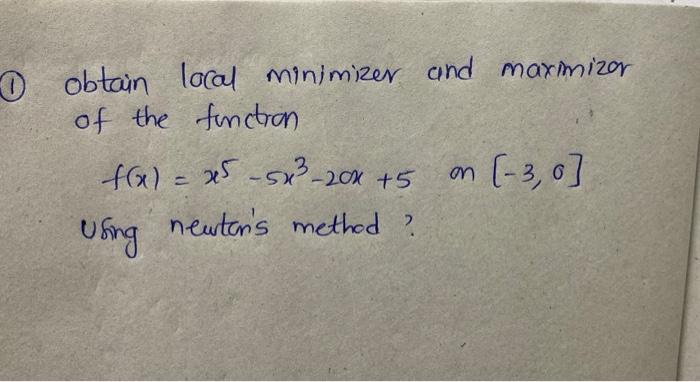 ① obtain local minimizer and maximizor
of the function
f(x) = x⁵ - 5x³ - 20x + 5 on [-3, 0]
Using newton's method ?